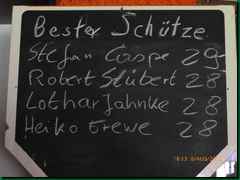 Bester Schütze
Stefan Caspe 29
Robert Stübert 28
Lothar Jahnke 28
Heiko Grewe 28